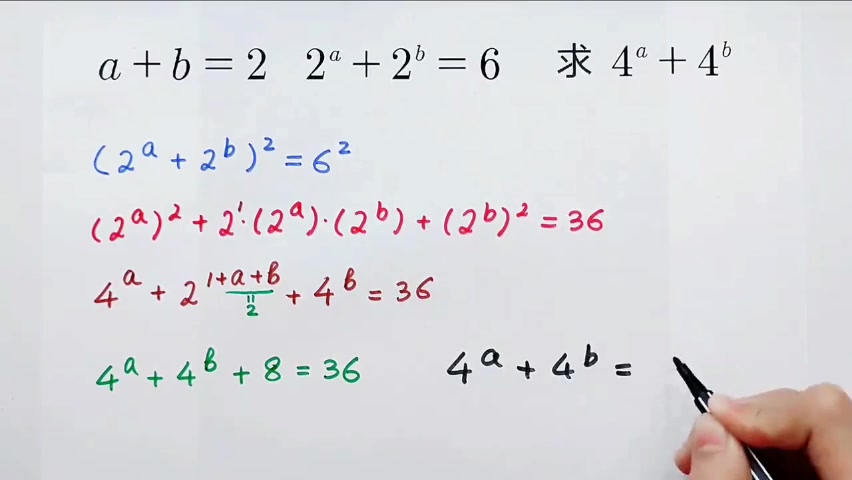 a + b = 2 2ᵃ + 2ᵇ = 6 求 4ᵃ + 4ᵇ
(2ᵃ + 2ᵇ)² = 6²
(2ᵃ)² + 2¹·(2ᵃ)·(2ᵇ) + (2ᵇ)² = 36
4ᵃ + 2¹⁺ᵃ⁺ᵇ + 4ᵇ = 36
=2
4ᵃ + 4ᵇ + 8 = 36 4ᵃ + 4ᵇ =